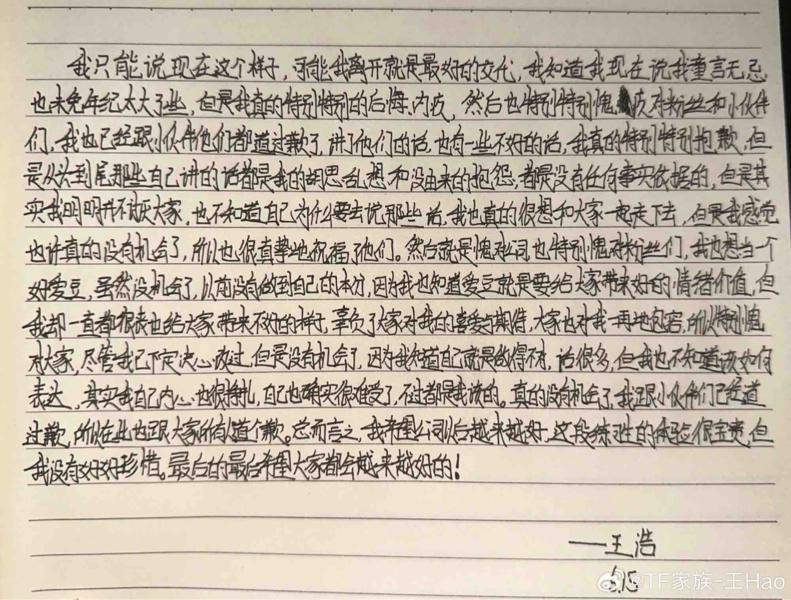 我只能说现在这个样子，可能我离开就是最好的交代，我知道我现在说我童言无忌
也未免年纪太大了些，但是我真的特别特别的后悔、内疚，然后也特别特别愧疚对粉丝和小伙伴
们，我也已经跟小伙伴他们都道过歉了，讲了他们的话，也有一些不好的话，我真的特别特别抱歉，但
是从头到尾那些自己讲的话都是我的胡思乱想和没由来的抱怨，都是没有任何事实依据的，但是其
实我明明并不讨厌大家，也不知道自己为什么要去说那些话，我也真的很想和大家一起走下去，但是我感觉
也许真的没有机会了，所以也很真挚地祝福了他们。然后就是愧对公司，也特别愧对粉丝们，我也想当一个
好爱豆，虽然没机会了，以前没有做到自己的本分，因为我也知道爱豆就是要给大家带来好的情绪价值，但
我却一直都很丧也给大家带来不好的样子，辜负了大家对我的喜爱与期待，大家也对我一再地包容，所以特别愧
对大家，尽管我已下定决心改过，但是没有机会了，因为我知道自己就是做得不对，话很多，但我也不知道该如何
表达，其实我自己内心也很挣扎，自己也确实很难受了，不过都是我该的。真的没有机会了，我跟小伙伴们已经道
过歉，所以在此也跟大家所有人道个歉。总而言之，我希望公司以后越来越好，这段练习生的体验很宝贵，但
我没有好好珍惜。最后的最后希望大家都会越来越好的！
——王浩
@TF家族-王Hao